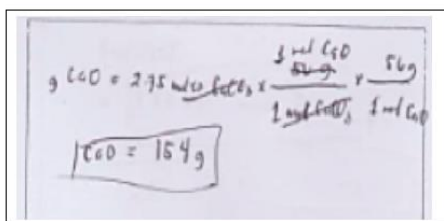 g CaO = 2.75 moles CaCO₃ x 1 mol CaO / 1 mol CaCO₃ x 56g / 1 mol CaO
CaO = 154 g